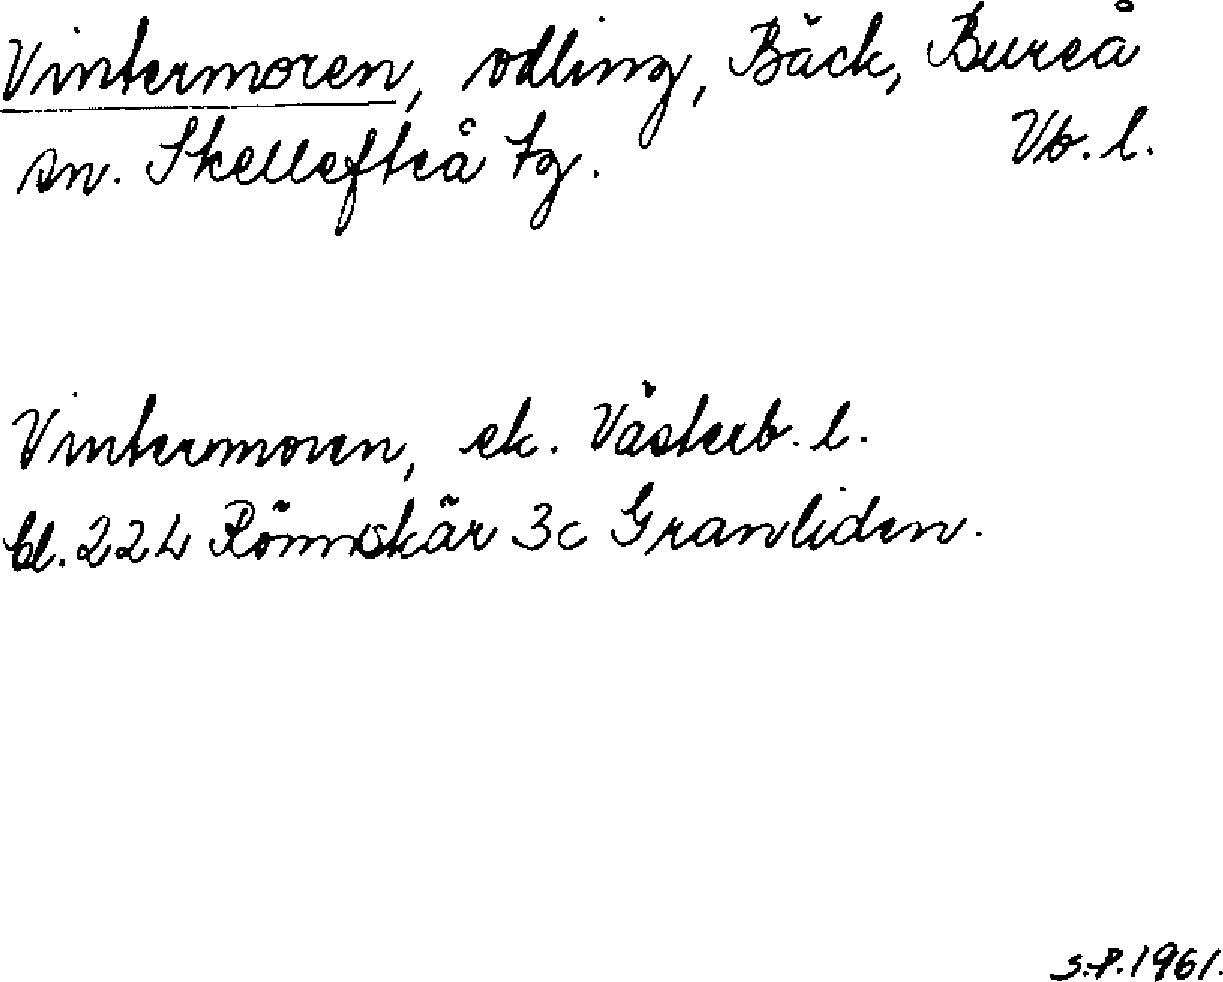 Vintermoren, odling, Bäck, Bureå
sn. Skellefteå tg. Vb. l.
Vintermoren, ek. Västerb. l.
bl. 22L Rönnskär 3c Granliden.
S.P. 1961.